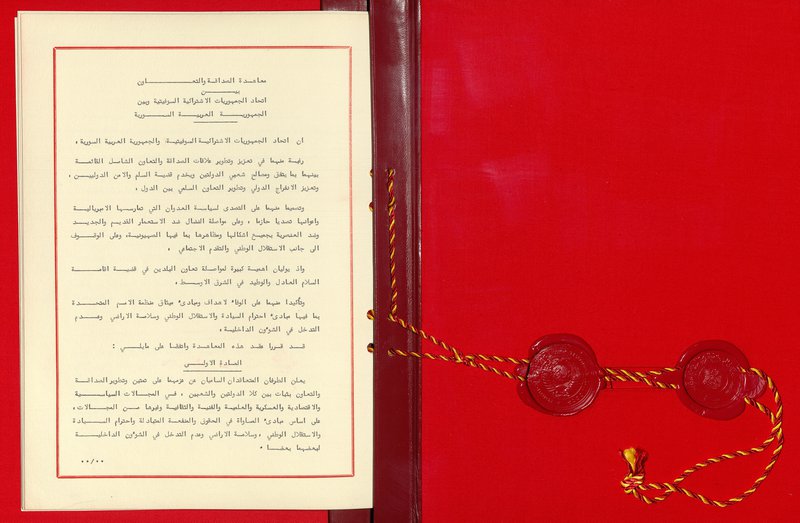 معاهدة الصداقة والتعاون
بين
اتحاد الجمهوريات الاشتراكية السوفيتية وبين
الجمهورية العربية السورية
ان اتحاد الجمهوريات الاشتراكية السوفيتية والجمهورية العربية السورية ،
رغبة منهما في تعزيز وتطوير علاقات الصداقة والتعاون الشامل القائمة
بينهما بما يتفق ومصالح شعبي الدولتين ويخدم قضية السلم والامن الدوليين ،
وتعزيز الانفراج الدولي وتطوير التعاون السلمي بين الدول ،
وتصميما منهما على التصدي لسياسة العدوان التي تمارسها الامبريالية
واعوانها تصديا حازما ، وعلى مواصلة النضال ضد الاستعمار القديم والجديد
وضد العنصرية بجميع اشكالها ومظاهرها بما فيها الصهيونية، وعلى الوقوف
الى جانب الاستقلال الوطني والتقدم الاجتماعي ،
واذ يوليان اهمية كبيرة لمواصلة تعاون البلدين في قضية اقامة
السلام العادل والوطيد في الشرق الاوسط ،
وتأكيدا منهما على الوفاء لاهداف ومبادىء ميثاق منظمة الامم المتحدة
بما فيها مبادىء احترام السيادة والاستقلال الوطني وسلامة الاراضي وعدم
التدخل في الشؤون الداخلية،
قد قررا عقد هذه المعاهدة واتفقا على مايلي :
المادة الاولى
يعلن الطرفان المتعاقدان الساميان عن عزمهما على تمتين وتطوير الصداقة
والتعاون بثبات بين كلا الدولتين والشعبين ، في المجالات السياسية
والاقتصادية والعسكرية والعلمية والفنية والثقافية وغيرها من المجالات ،
على اساس مبادىء المساواة في الحقوق والمنفعة المتبادلة واحترام السيادة
والاستقلال الوطني ، وسلامة الاراضي وعدم التدخل في الشؤون الداخلية
لبعضهما بعضا ٠
٠٠/٠٠